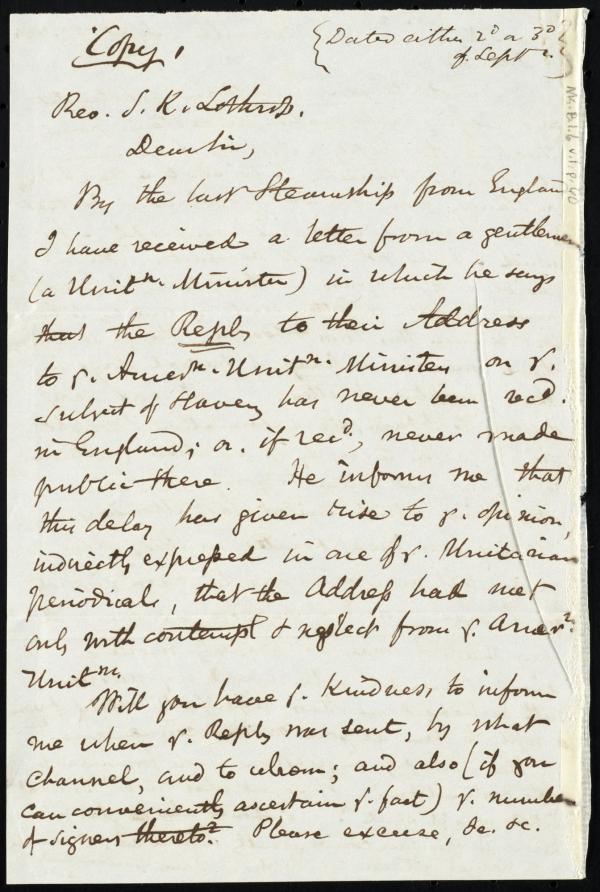 Copy.
{Dated either 2d or 3d
of Septr.}
Rev. S. K. Lothrop.
Dear Sir,
By the last Steamship from England
I have received a letter from a gentleman
(a Unitn. Minister) in which he says
that the Reply to their Address
to ye. Amern. Unitn. Ministers on ye.
subject of Slavery has never been recd.
in England; or, if recd., never made
public there. He informs me that
this delay has given rise to ye. opinion,
indirectly expressed in one of ye. Unitarian
periodicals, that the Address had met
only with contempt & neglect from ye. Amern.
Unitns.
Will you have ye. kindness to inform
me when ye. Reply was sent, by what
channel, and to whom; and also (if you
can conveniently ascertain ye. fact) ye. number
of signers thereto? Please excuse, &c. &c.
Ms. B.1.6 v.1, p.60